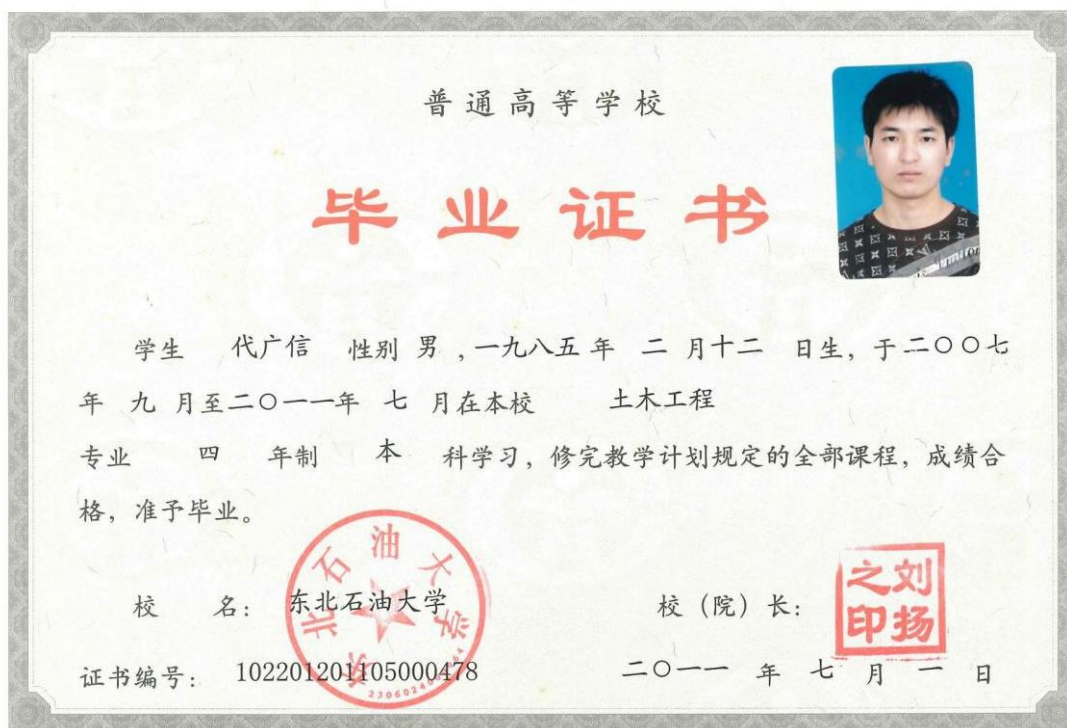 普通高等学校
毕业证书
学生 代广信 性别 男 ,一九八五 年 二 月十二 日生，于二〇〇七
年 九 月至二〇一一年 七 月在本校 土木工程
专业 四 年制 本 科学习，修完教学计划规定的全部课程，成绩合
格，准予毕业。
校 名： 东北石油大学
校（院）长：
东北石油大学
刘扬之印
证书编号： 102201201105000478
二〇一一 年 七 月 一 日